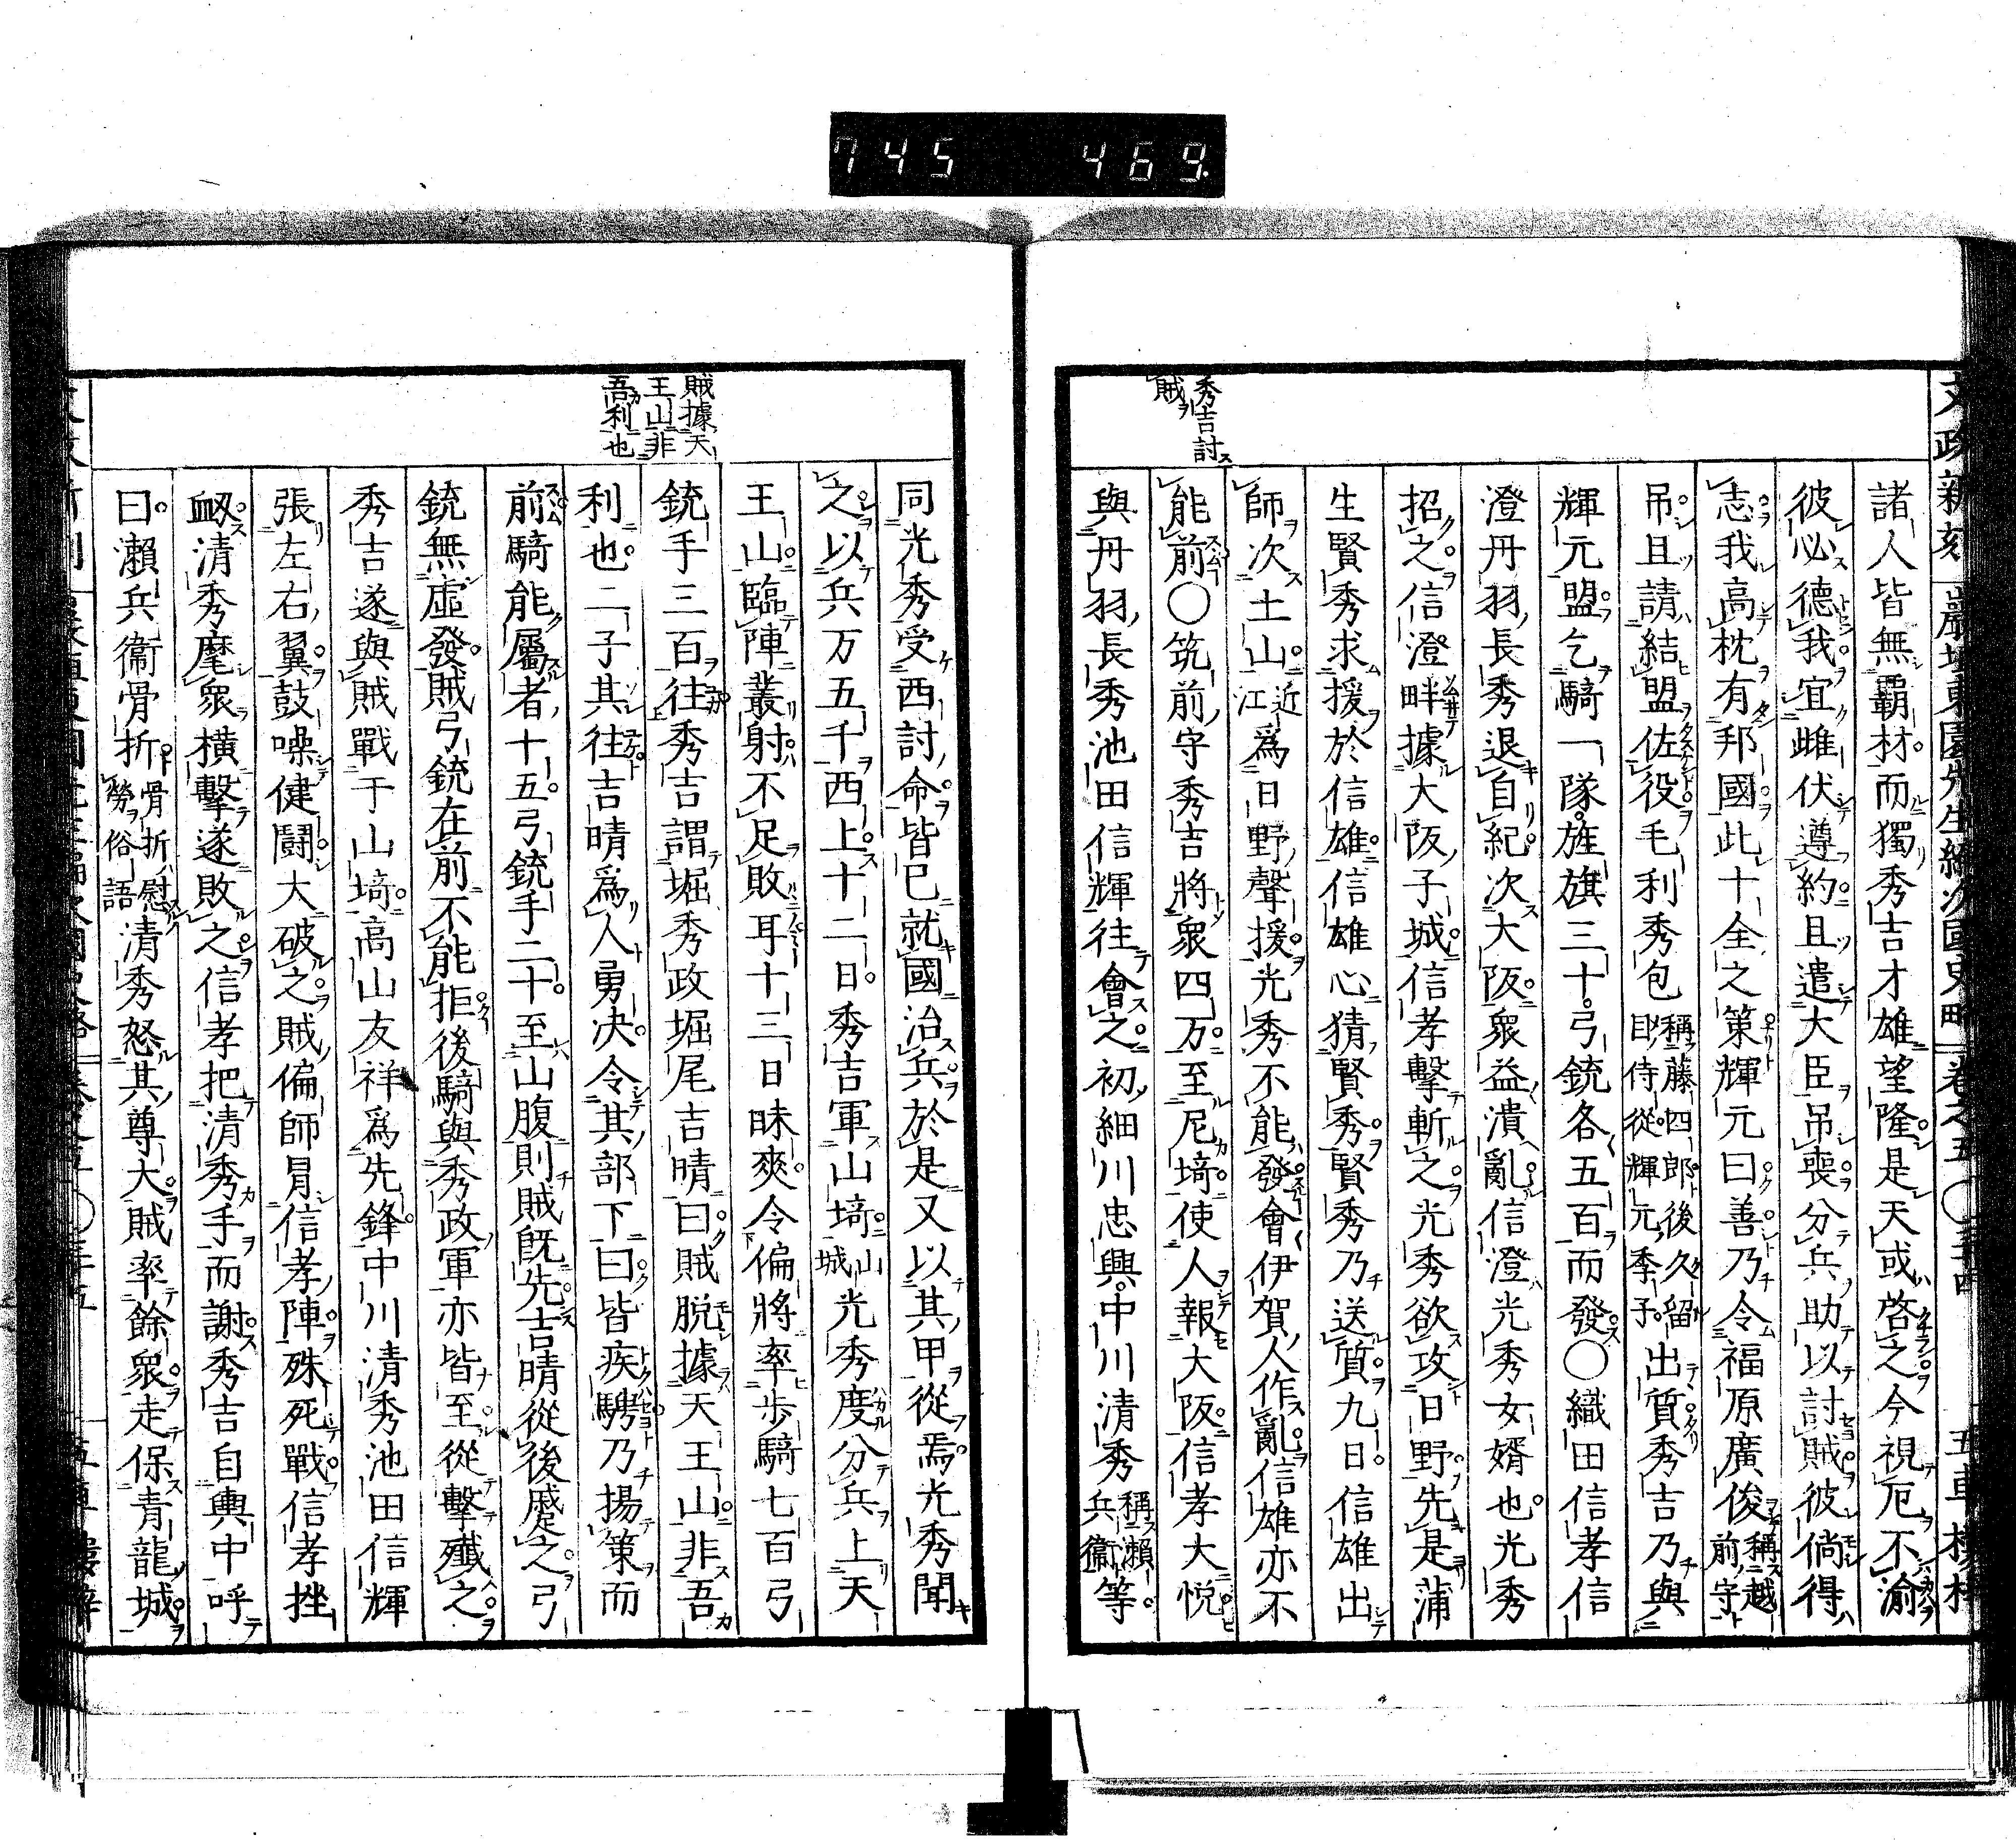 745 469
文政新刻 巖垣東園先生編次國史略 卷之五 ○三十四 五車樓梓
秀吉討
賊
諸人皆無霸材而獨秀吉才雄望隆是天或啓之今視厄不渝
彼必德我宜雌伏遵約且遣大臣吊喪分兵助以討賊彼倘得
志我高枕有邦國此十全之策輝元曰善乃令福原廣俊稱越前守
吊且請結盟佐役毛利秀包稱藤四郎後久留目侍從輝元季子出質秀吉乃與
輝元盟乞騎一隊旌旗三十弓銃各五百而發○織田信孝信
澄丹羽長秀退自紀次大阪衆益潰亂信澄光秀女婿也光秀
招之信澄畔據大阪子城信孝擊斬之光秀欲攻日野先是蒲
生賢秀求援於信雄信雄心猜賢秀賢秀乃送質九日信雄出
師次土山近江爲日野聲援光秀不能發會伊賀人作亂信雄亦不
能前○筑前守秀吉將衆四万至尼埼使人報大阪信孝大悦
與丹羽長秀池田信輝往會之初細川忠興中川清秀稱瀨兵衞等
同光秀受西討命皆已就國治兵於是又以其甲從焉光秀聞
之以兵万五千西上十二日秀吉軍山埼山城光秀度分兵上天
王山臨陣叢射不足敗耳十三日昧爽令偏將率歩騎七百弓
銃手三百往秀吉謂堀秀政堀尾吉晴曰賊脱據天王山非吾
利也二子其往吉晴爲人勇决令其部下曰皆疾騁乃揚策而
前騎能屬者十五弓銃手二十至山腹則賊既先吉晴從後蹙之弓
銃無虛發賊弓銃在前不能拒後騎與秀政軍亦皆至從擊殲之
秀吉遂與賊戰于山埼高山友祥爲先鋒中川清秀池田信輝
張左右翼鼓噪健鬪大破之賊偏師冐信孝陣殊死戰信孝挫
衂清秀麾衆橫擊遂敗之信孝把清秀手而謝秀吉自輿中呼
曰瀨兵衞骨折骨折慰勞俗語清秀怒其尊大賊率餘衆走保青龍城
賊據天
王山非
吾利也